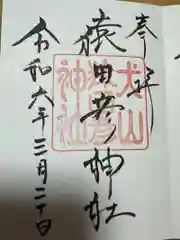 奉拝
猿田彦神社
犬山
猿田彦
神社
令和六年三月二十日